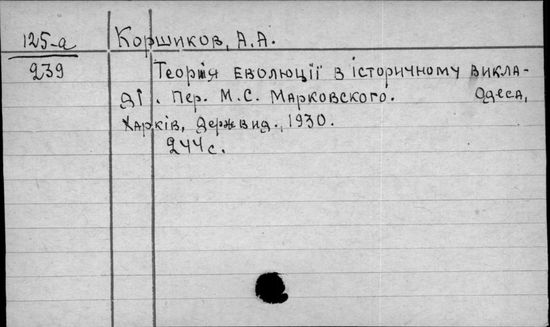 125-а Коршиков, А.А.
239 Теорія еволюції в історичному викла-
ді. Пер. М.С. Марковского. Одеса,
Харків, Держвид., 1930.
244 с.